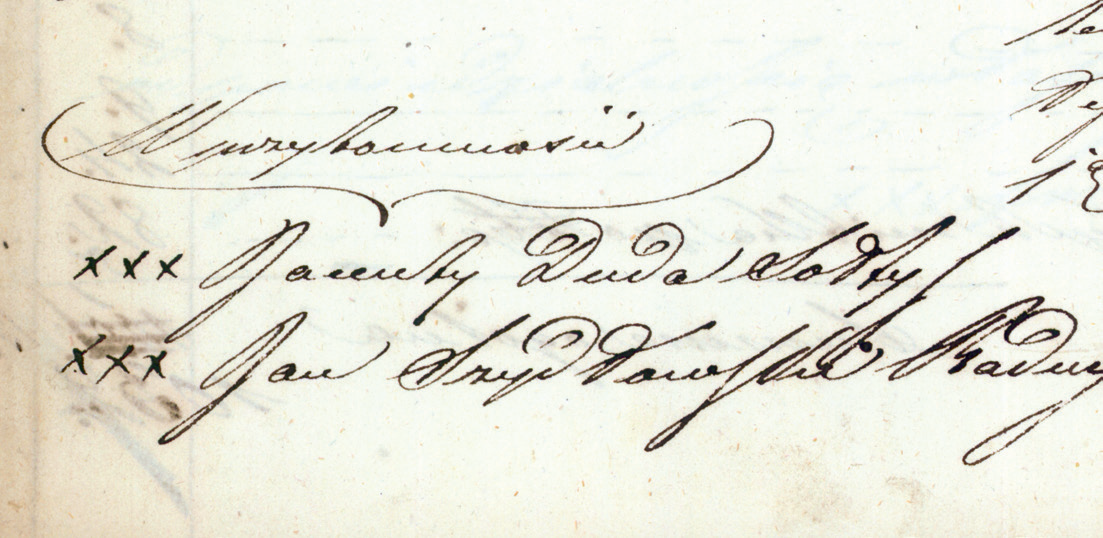 W przytomności
xxx Jacenty Duda Sołtys
xxx Jan Szydłowski Radny